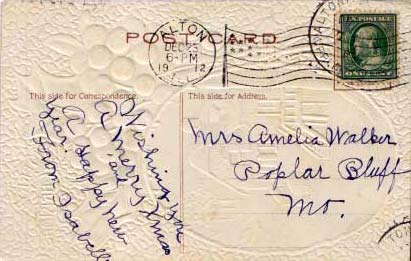 POST CARD
ALTON
DEC 23
6-PM
1912
ILL.
U.S. POSTAGE
This side for Correspondence.
This side for Address.
Wishing you
A Merry Xmas
and
A Happy New
Year
From Isabelle
Mrs Amelia Walker
Poplar Bluff
Mo.